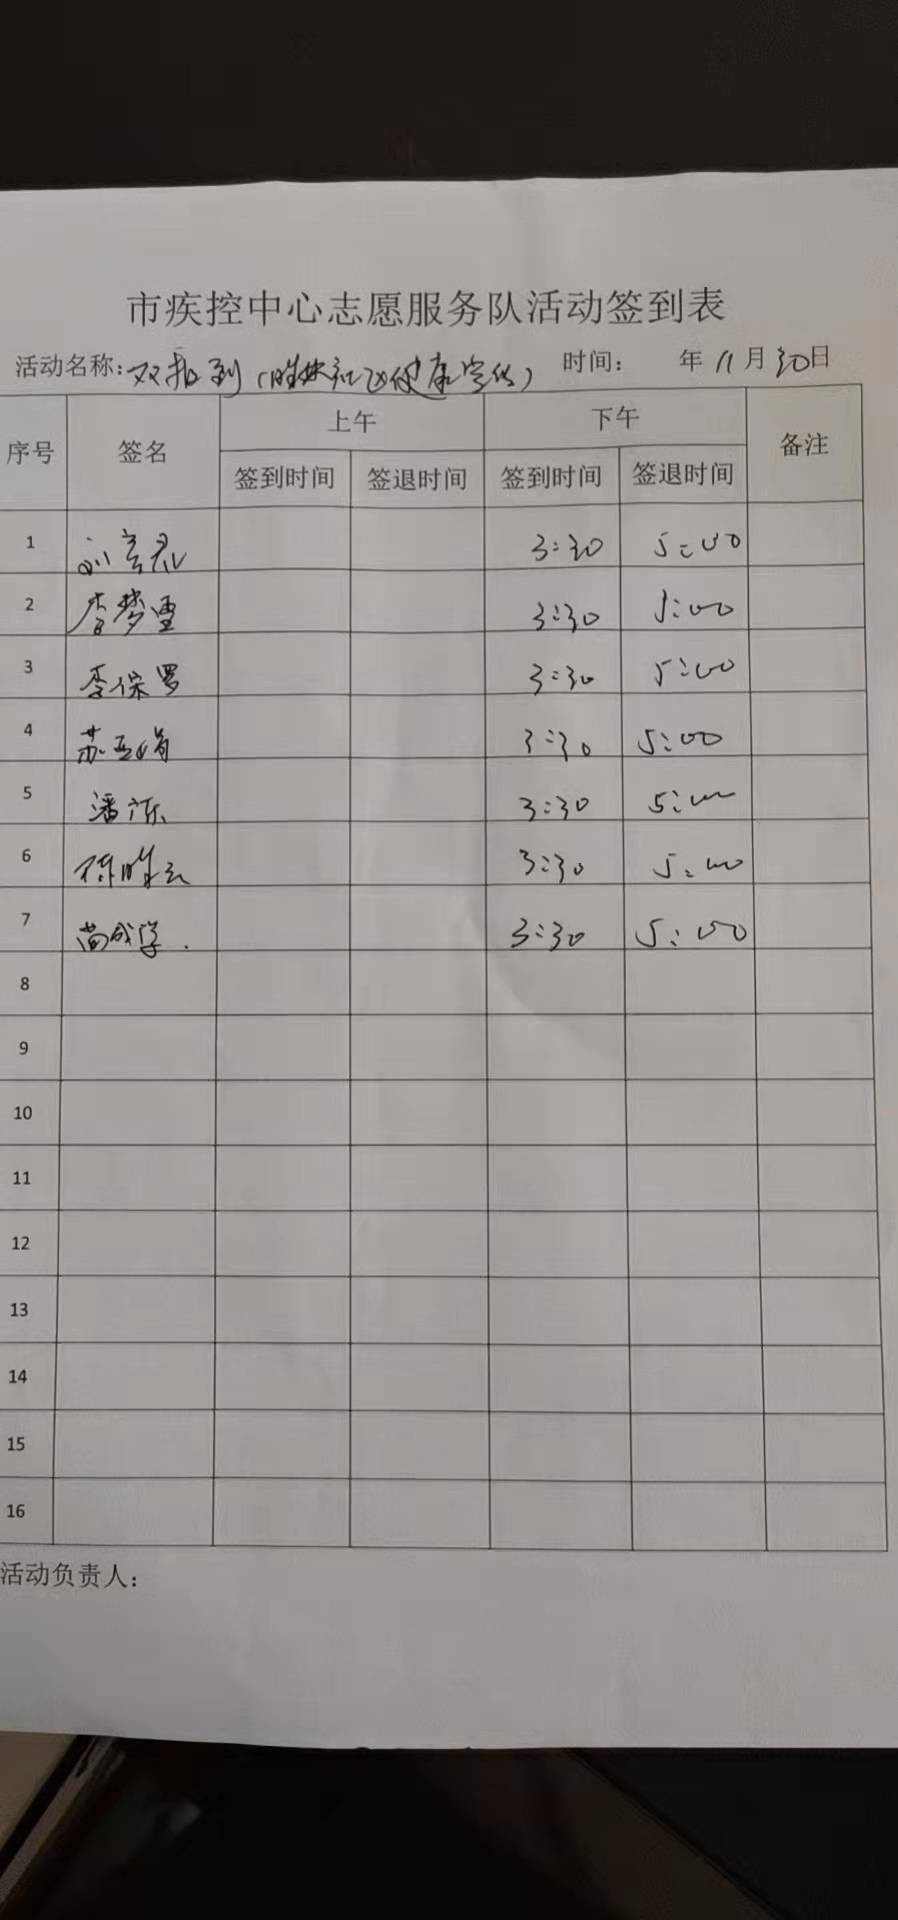 市疾控中心志愿服务队活动签到表
活动名称:双报到(健康宣传) 时间: 年11月30日
序号 签名 上午 下午 备注
签到时间 签退时间 签到时间 签退时间
1 3:30 5:00
2 李梦雪 3:30 5:00
3 李保罗 3:30 5:00
4 苏亚娟 3:30 5:00
5 潘 3:30 5:00
6 3:30 5:00
7 尚成学. 3:30 5:00
8
9
10
11
12
13
14
15
16
活动负责人: